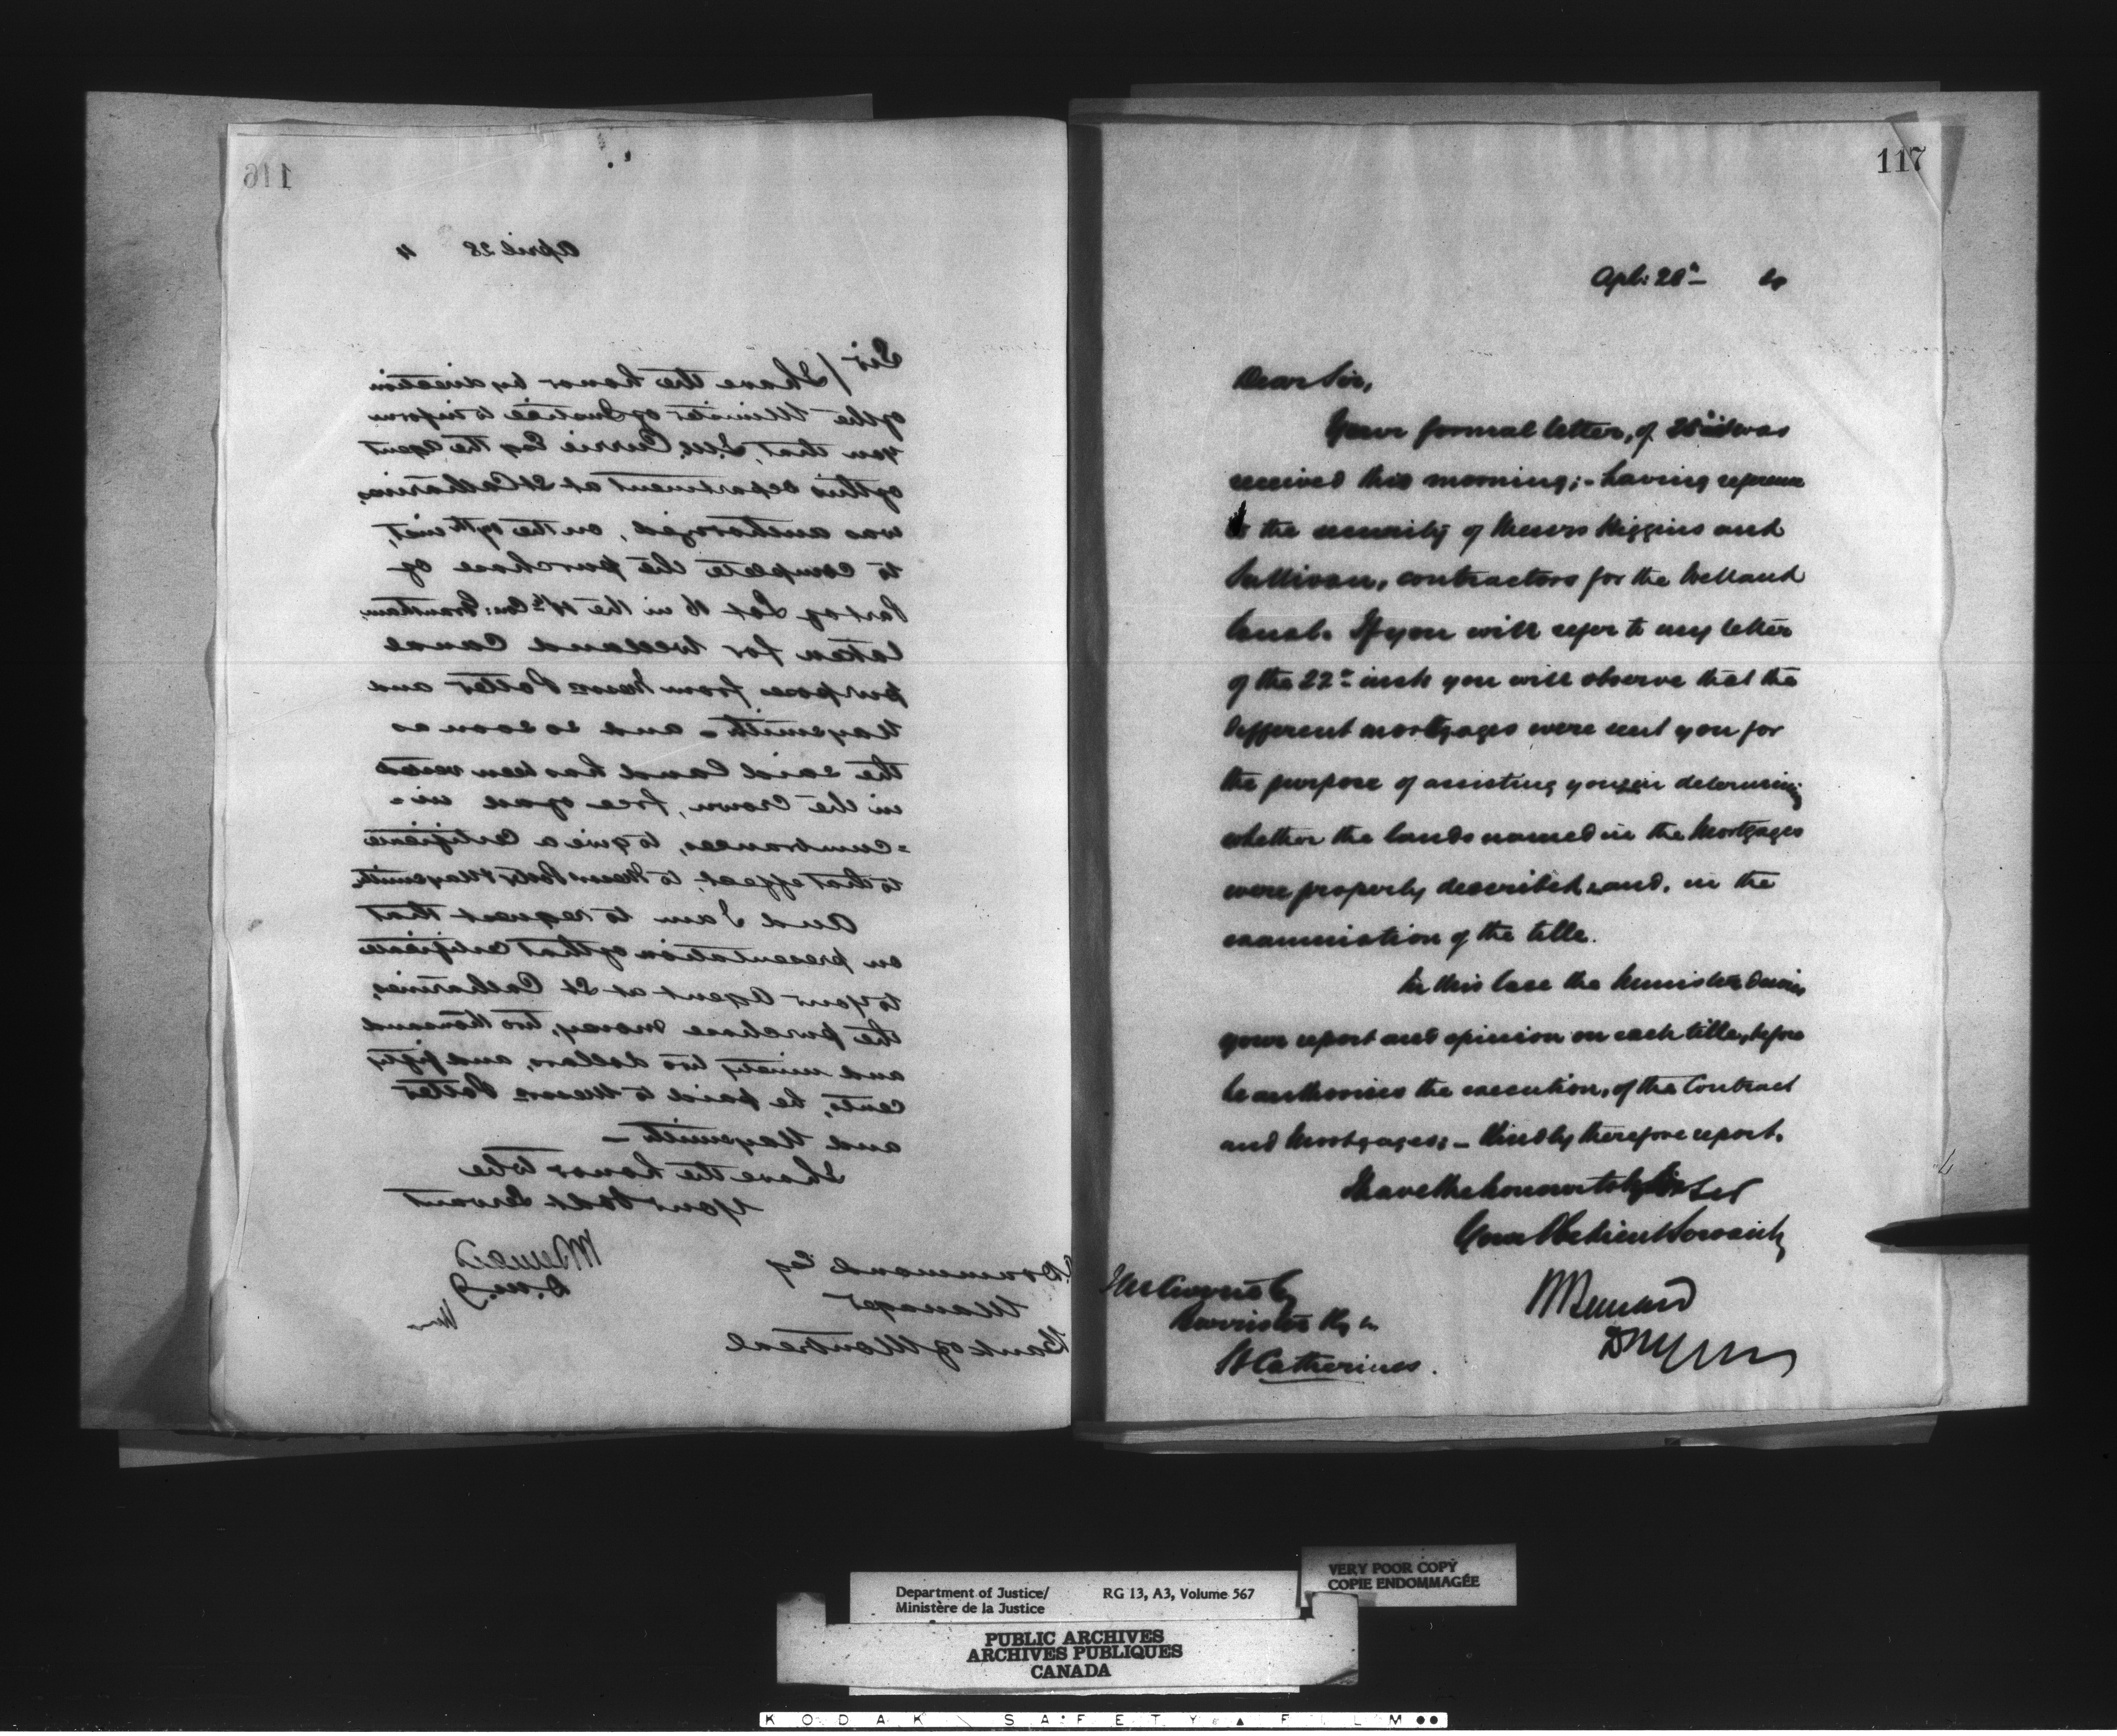 116
April 28 4
Sir / I have the honor by direction
of the Minister of Justice to inform
you that, J.W. Currie Esq the Agent
of this Department at St Catharines,
was authorized, on the inst,
to complete the purchase of
Part of Lot 16 in the Con: Grantham
taken for Welland Canal
purposes from Messrs Potter and
Naysmith - and so soon as
the said Land has been vested
in the Crown, free of all in-
=cumbrances, to give a Certificate
to that effect, to Messrs Potter & Naysmith
And I am to request that
on presentation of that certificate
to your Agent at St Catharines,
the purchase money, two thousand
and ninety two dollars, and fifty
cents, be paid to Messrs Potter
and Naysmith -
I have the honor to be
Your Obdt Servant
H Bernard
D.M.J
Drummond Esq
Manager
Bank of Montreal
117
Apl: 28th
Dear Sir,
Your formal letter, of inst was
received this morning; - having reference
to the security of Messrs Higgins and
Sullivan, contractors for the Welland
Canal. If you will refer to my letter
of the 22nd inst you will observe that the
different mortgages were sent you for
the purpose of assisting you in determining
whether the lands named in the Mortgages
were properly described, and, in the
examination of the title.
In this case the Minister desires
your report and opinion on each title, before
he authorises the execution, of the Contract
and Mortgages; - Kindly therefore report.
I have the honour to be Sir
Your Obedient Servant
H Bernard
Esq
Barrister
St Catherines.
Department of Justice/ RG 13, A3, Volume 567
Ministère de la Justice
VERY POOR COPY
COPIE ENDOMMAGÉE
PUBLIC ARCHIVES
ARCHIVES PUBLIQUES
CANADA
KODAK SAFETY FILM